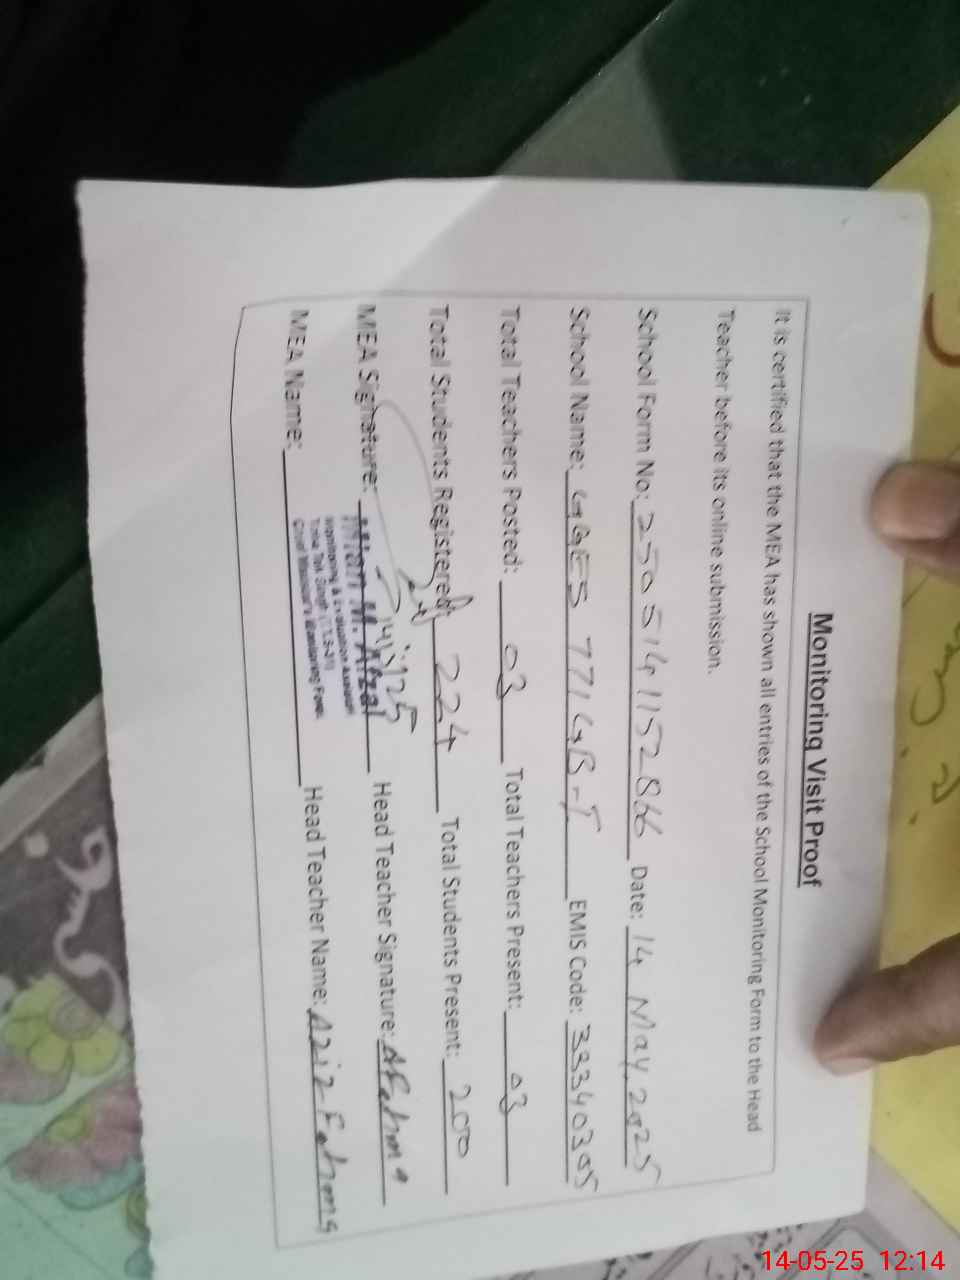 Monitoring Visit Proof
It is certified that the MEA has shown all entries of the School Monitoring Form to the Head
Teacher before its online submission.
School Form No: 2505141152866 Date: 14 May, 2025
School Name: GGES 771 GB-I EMIS Code: 33340305
Total Teachers Posted: 03 Total Teachers Present: 03
Total Students Registered: 224 Total Students Present: 200
MEA Signature: Head Teacher Signature:
Mian M. Afzal
Monitoring & Evaluation Assistant
Toba Tek Singh
Chief Minister's Monitoring Force
MEA Name: Head Teacher Name: Aziz Fatima
14-05-25 12:14